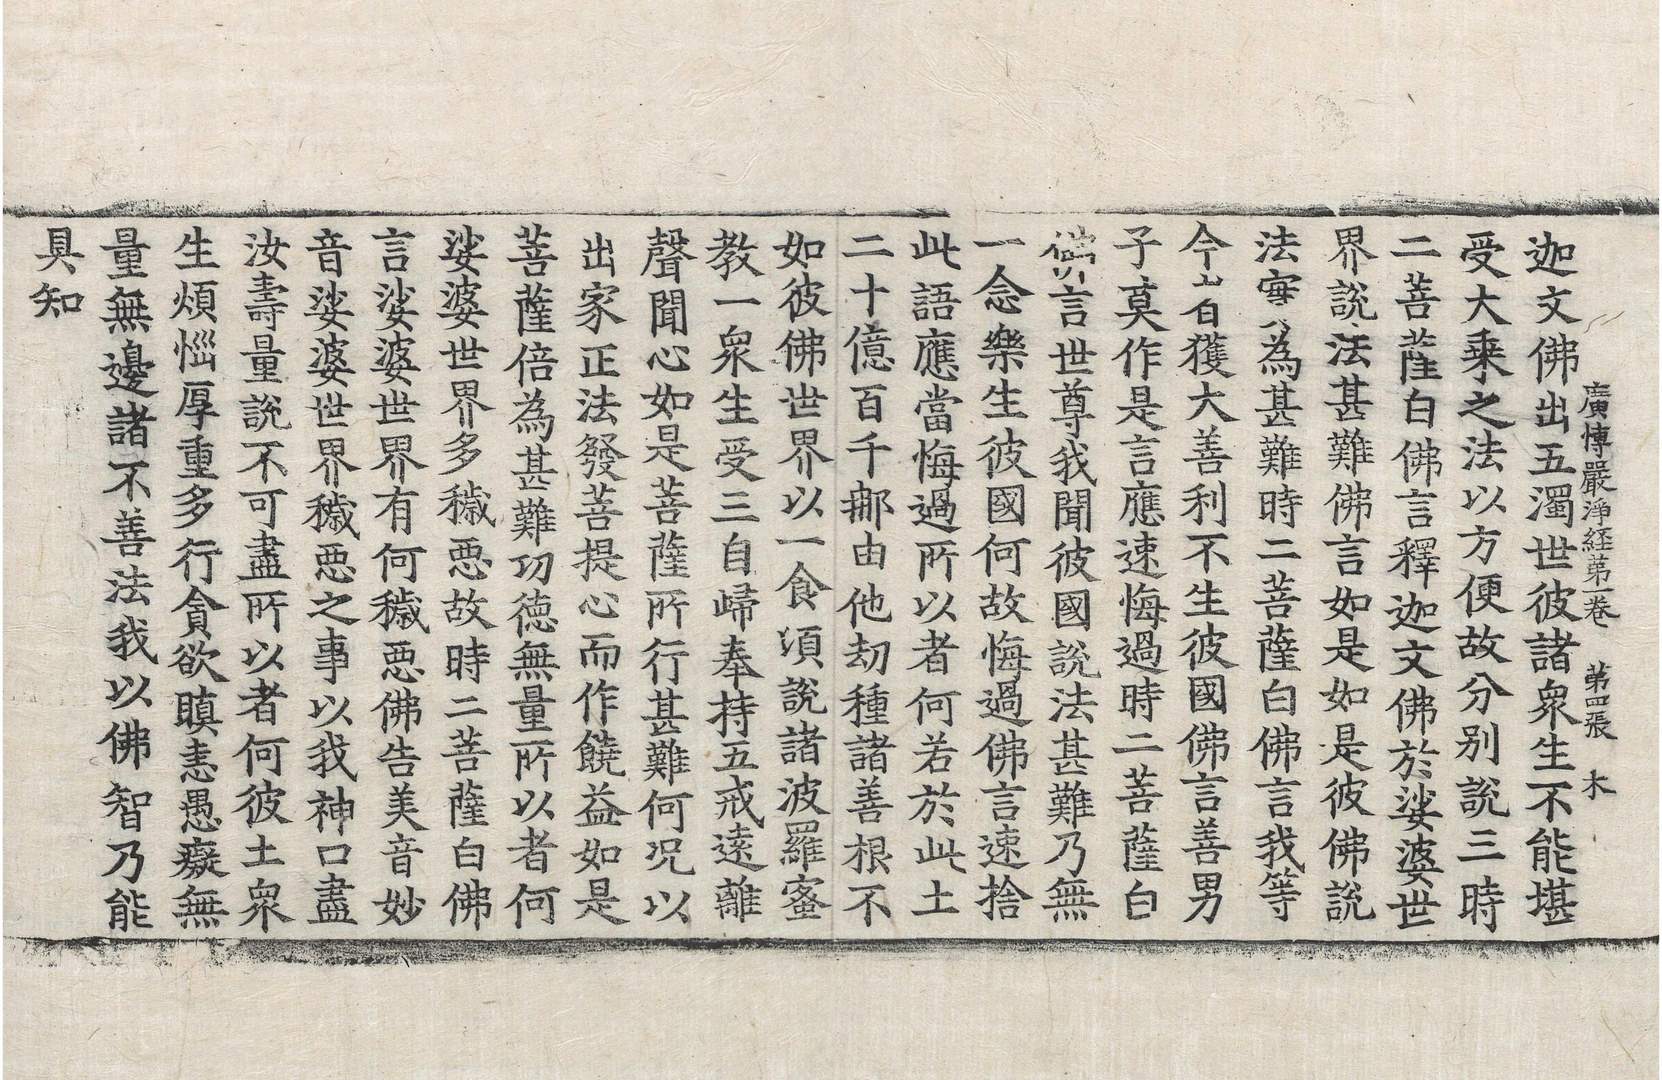 廣博嚴淨経第一卷 第四張 木
迦文佛出五濁世彼諸衆生不能堪
受大乗之法以方便故分别說三時
二菩薩白佛言釋迦文佛於娑婆世
界說法甚難佛言如是如是彼佛說
法實為甚難時二菩薩白佛言我等
今者獲大善利不生彼國佛言善男
子莫作是言應速悔過時二菩薩白
佛言世尊我聞彼國說法甚難乃無
一念樂生彼國何故悔過佛言速捨
此語應當悔過所以者何若於此土
二十億百千那由他劫種諸善根不
如彼佛世界以一食須說諸波羅蜜
教一衆生受三自歸奉持五戒遠離
聲聞心如是菩薩所行甚難何况以
出家正法發菩提心而作饒益如是
菩薩倍為甚難功德無量所以者何
娑婆世界多穢惡故時二菩薩白佛
言娑婆世界有何穢惡佛告美音妙
音娑婆世界穢惡之事以我神口盡
汝壽量說不可盡所以者何彼土衆
生煩惱厚重多行貪欲瞋恚愚癡無
量無邊諸不善法我以佛智乃能
具知